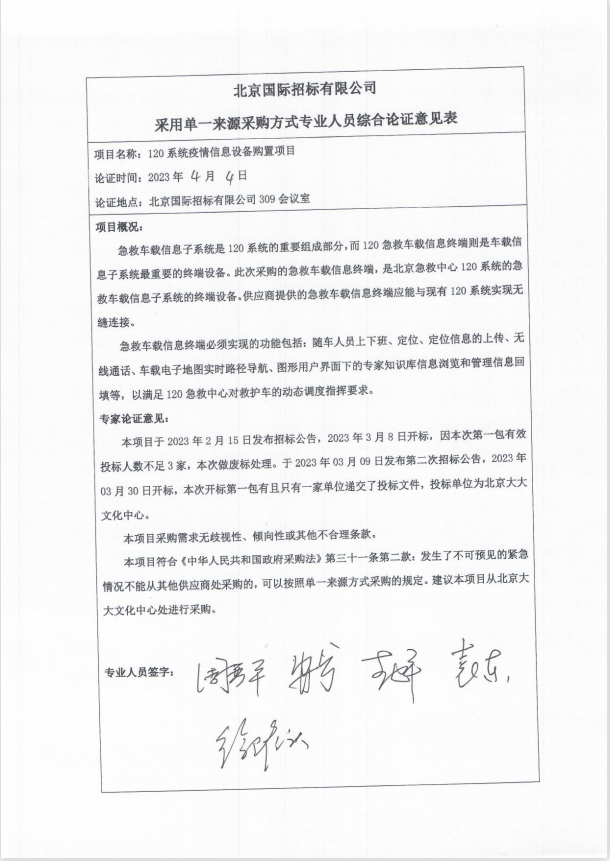 北京国际招标有限公司
采用单一来源采购方式专业人员综合论证意见表
项目名称：120 系统疫情信息设备购置项目
论证时间：2023 年 4 月 4 日
论证地点：北京国际招标有限公司 309 会议室
项目概况：
急救车载信息子系统是 120 系统的重要组成部分，而 120 急救车载信息终端则是车载信
息子系统最重要的终端设备。此次采购的急救车载信息终端，是北京急救中心 120 系统的急
救车载信息子系统的终端设备。供应商提供的急救车载信息终端应能与现有 120 系统实现无
缝连接。
急救车载信息终端必须实现的功能包括：随车人员上下班、定位、定位信息的上传、无
线通话、车载电子地图实时路径导航、图形用户界面下的专家知识库信息浏览和管理信息回
填等，以满足 120 急救中心对救护车的动态调度指挥要求。
专家论证意见：
本项目于 2023 年 2 月 15 日发布招标公告，2023 年 3 月 8 日开标，因本次第一包有效
投标人数不足 3 家，本次做废标处理。于 2023 年 03 月 09 日发布第二次招标公告，2023 年
03 月 30 日开标，本次开标第一包有且只有一家单位递交了投标文件，投标单位为北京大大
文化中心。
本项目采购需求无歧视性、倾向性或其他不合理条款。
本项目符合《中华人民共和国政府采购法》第三十一条第二款：发生了不可预见的紧急
情况不能从其他供应商处采购的，可以按照单一来源方式采购的规定。建议本项目从北京大
大文化中心处进行采购。
专业人员签字：
袁东